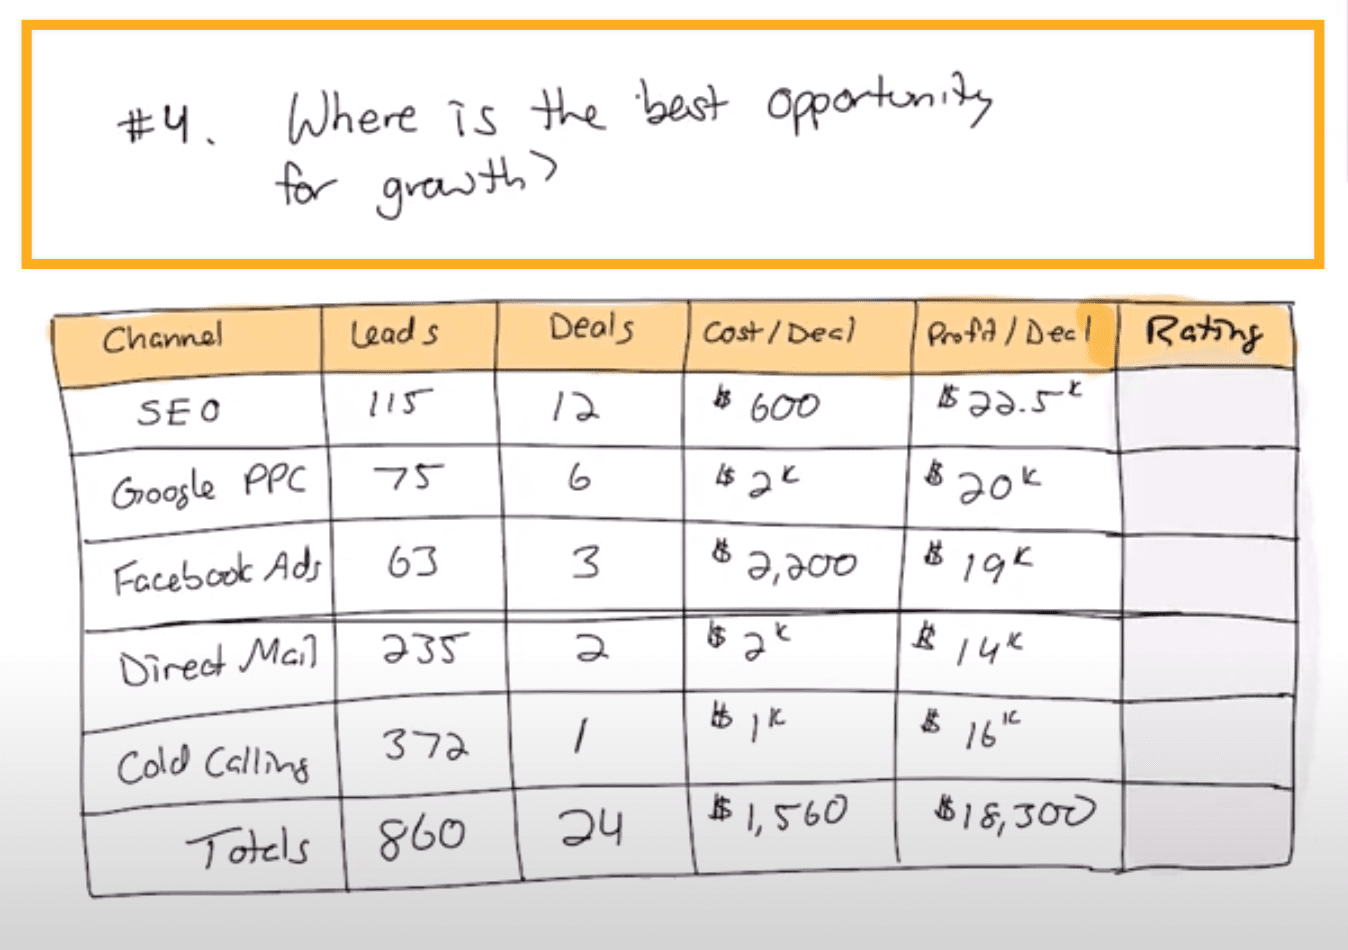 #4. Where is the best opportunity
for growth?
Channel Leads Deals Cost/Deal Profit/Deal Rating
SEO 115 12 $600 $22.5K
Google PPC 75 6 $2K $20K
Facebook Ads 63 3 $2,200 $19K
Direct Mail 235 2 $2K $14K
Cold Calling 372 1 $1K $16K
Totals 860 24 $1,560 $18,300